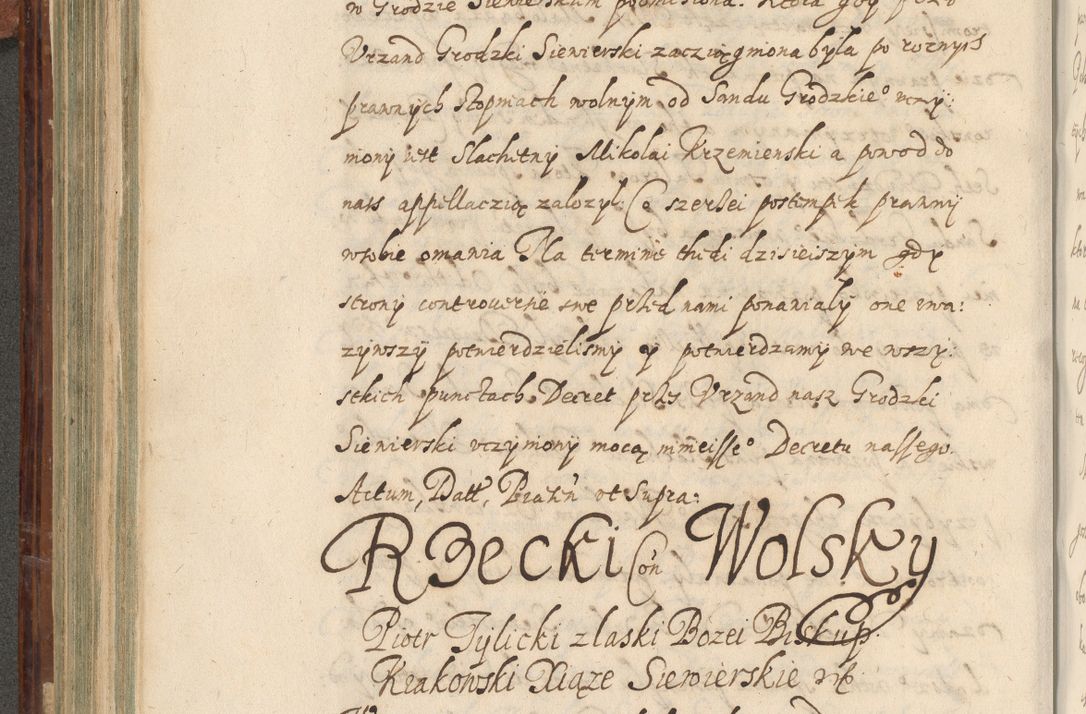 w Grodzie Siewierskim pozwow
Vrzand Grodzki Siewierski zaczęgniona byla po roznych
prawnych stopniach wolnym od Sandu Grodzkie° vczy:
niony iest Slachetny Mikolai Krzemienski a powod do
nass appellaczię zalozyl: Co szerssei postempek prawny
wsobie omawia Na terminie thedi dzisieiszym gdy
strony controuersie swe przed nami ponawialy one vwa:
zywszy potwierdzielismy y potwierdzamy we wszy:
stkich punctach Decret przes Vrzand nasz Grodzki
Siewierski vczyniony mocą ninieisse° Decretu nassego.
Actum, Datt, Praesn vt supra:
Rzecki Con Wolsky
Piotr Tylicki z laski Bozei Biskup
Krakowski Xiąze Siewierskie etc